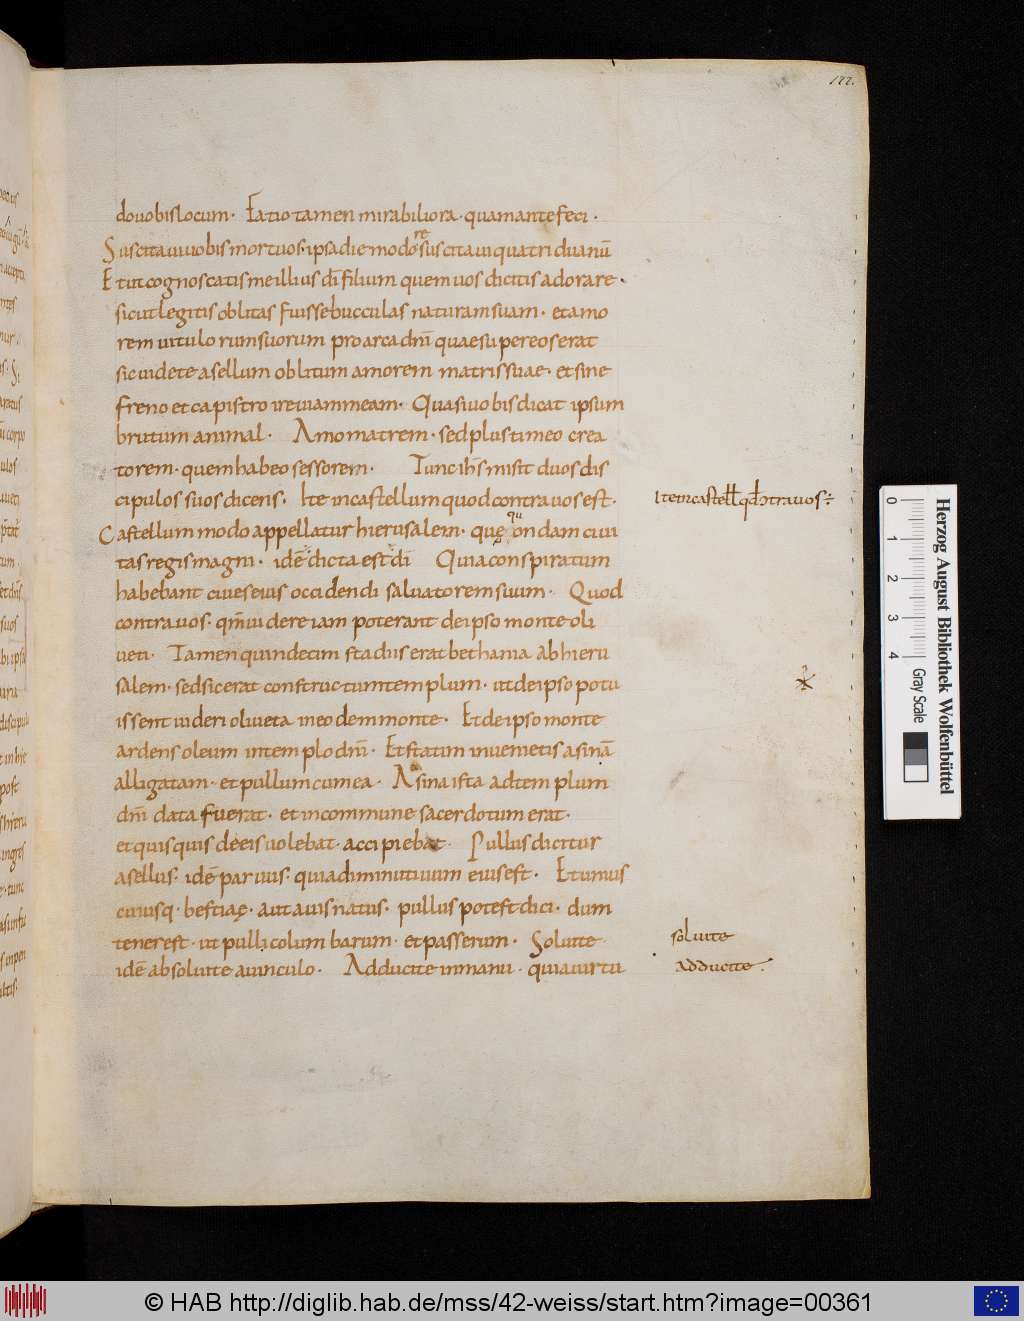 177.
douobis locum. Etatio tamen mirabiliora. quam ante feci.
Suscitaui uobis mortuos. ipsa die modo resuscitaui quatriduanū
Et ut cognoscatis me illius dī filium quem uos dicitis adorare.
sicut legitis oblitas fuisse bucculas naturam suam. et amo
rem uitulorum suorum pro arca dn̄i quae super eos erat
sic uidete asellum oblitum amorem matris suae. et sine
freno et capistro ire uiam meam. Quasi uobis dicat ipsum
brutum animal. Amo matrem. sed plus timeo crea
torem. quem habeo sessorem. Tunc ih̄s misit duos dis
cipulos suos dicens. Ite in castellum quod contra uos est.
Ite in castell̄ qd̄ ɔtra uos
Castellum modo appellatur hierusalem. quę quondam ciui
tas regis magni. idē dicta est dī Quia conspiratum
habebant ciues eius occidendi saluatorem suum. Quod
contra uos. qm̄ uidere iam poterant de ipso monte oli
ueti. Tamen quindecim stadiis erat bethania ab hieru
salem. sed sic erat constructum templum. ut de ipso potu
issent uideri oliueta in eodem monte. Et de ipso monte
ardens oleum in templo dn̄i. Et statim inuenietis asinā
alligatam. et pullum cum ea. Asina ista ad templum
dn̄i data fuerat. et in commune sacerdotum erat.
et quisquis de eis uolebat. accipiebat. Pullus dicitur
asellus. idē paruus. quia diminutiuum eius est. Et unius
cuiusq. bestiaę. aut auis natus. pullus potest dici. dum
tener est. ut pulli columbarum. et passerum. Soluite
soluite
idē absoluite a uinculo. Adducite in manu. quia uirtu
adducite.
Herzog August Bibliothek Wolfenbüttel
0 1 2 3 4 Gray Scale
© HAB http://diglib.hab.de/mss/42-weiss/start.htm?image=00361